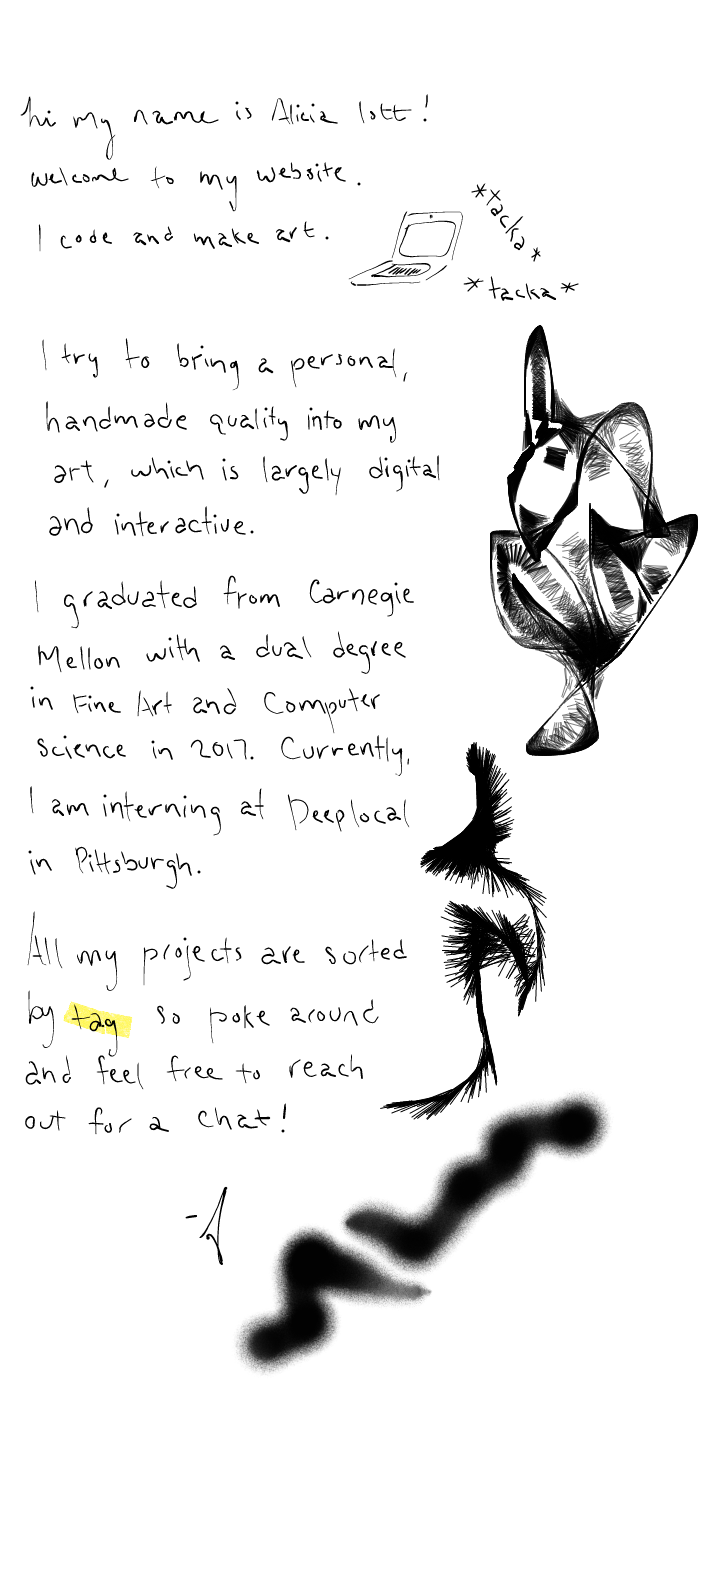 hi my name is Alicia Iott!
welcome to my website.
I code and make art.
*tacka*
*tacka*
I try to bring a personal,
handmade quality into my
art, which is largely digital
and interactive.
I graduated from Carnegie
Mellon with a dual degree
in Fine Art and Computer
Science in 2017. Currently,
I am interning at Deeplocal
in Pittsburgh.
All my projects are sorted
by tag so poke around
and feel free to reach
out for a chat!
-A